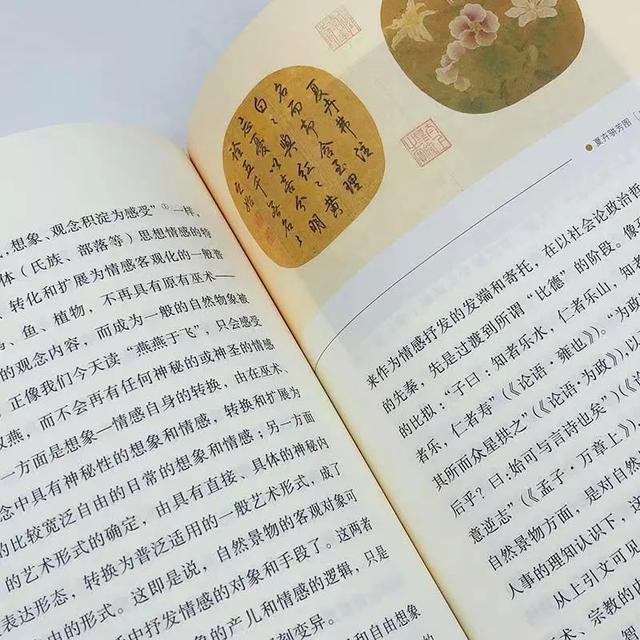 、想象、观念积淀为感受”①一样，
体（氏族、部落等）思想情感的特
、转化和扩展为情感客观化的一般普
鸟、鱼、植物，不再具有原有巫术——
的观念内容，而成为一般的自然物象被
正像我们今天读“燕燕于飞”，只会感受
双燕，而不会再有任何神秘的或神圣的情感
一方面是想象—情感自身的转换，由在巫术、
念中具有神秘性的想象和情感，转换和扩展为
的比较宽泛自由的日常的想象和情感；另一方面
的艺术形式的确定，由具有直接、具体的神秘内
表达形态，转换为普泛适用的一般艺术形式，成了
由的形式。这即是说，自然景物的客观对象可
中抒发情感的对象和手段了。这两者
象的产儿和情感的逻辑，只是
刻变异。
和自由想象
夏卉骈芳图
来作为情感抒发的发端和寄托，在以社会论政治哲
的先秦，先是过渡到所谓“比德”的阶段。像
的比拟：“子曰：知者乐水，仁者乐山，知者
者乐，仁者寿”（《论语·雍也》）。“为
其所而众星拱之”（《论语·为政》），以
后乎？曰：始可与言诗也矣”（《
意逆志”（《孟子·万章上》）
自然景物方面，是对自然
人事的理知认识下，这
从上引文可见
术、宗教的